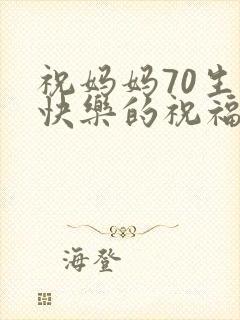 祝妈妈70生
快樂的祝福
海登